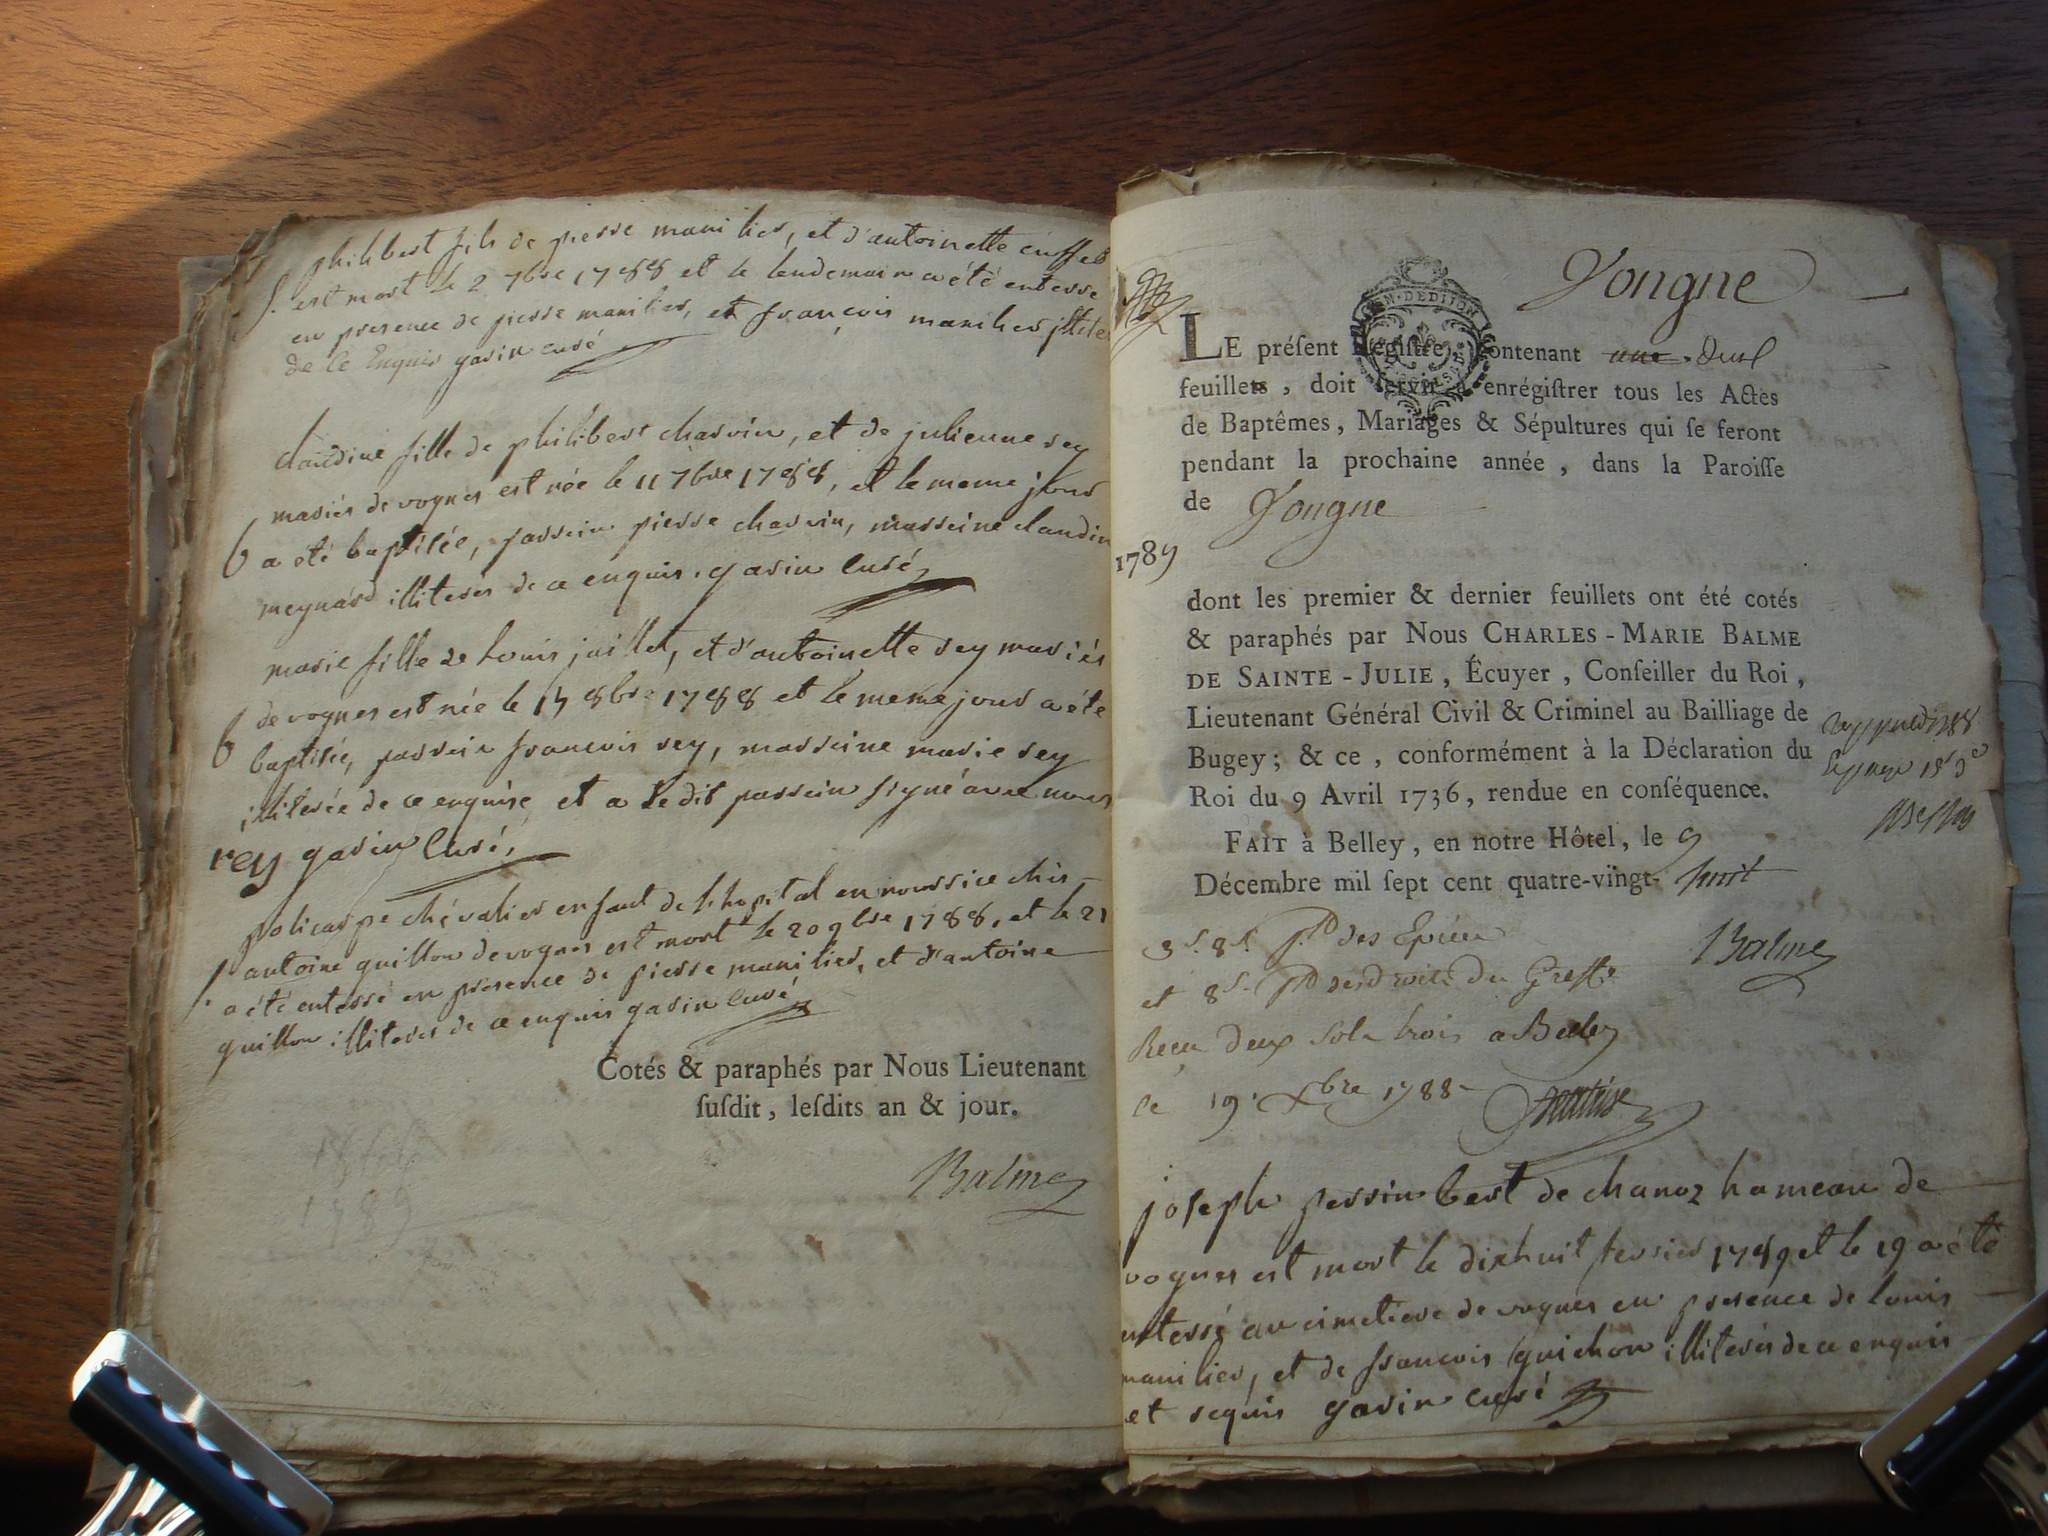 philibert fils de pierre manilier, et d'antoinette
S. est mort le 2 7bre 1788 et le lendemain a été enterré
en presence de pierre manilier, et françois manilier
de ce Enquis garin curé
Claudine fille de philibert charvin, et de julienne rey
mariés de vognes est née le 11 7bre 1788, et le meme jour
B a été baptisée, parrein pierre charvin, marreine claudin
meynard illiterés de ce enquis. garin curé
marie fille de Louis juillet, et d'antoinette rey mariés
B de vognes est née le 8bre 1788 et le meme jour a été
baptisée, parrein françois rey, marreine marie rey
illiterée de ce enquise et a le dit parrein signé avec nous
rey garin curé
policarpe chevalier enfant de l'hopital en nourrice chés
S. antoine guillon de vognes est mort le 20 9bre 1788, et le 21
a été enterré en presence de pierre manilier, et d'antoine
guillon illiterés de ce enquis garin curé
Cotés & paraphés par Nous Lieutenant
ſuſdit, leſdits an & jour.
Balme
1789
Vongne
LE préſent Regiſtre, contenant une deux
feuillets, doit ſervir à enrégiſtrer tous les Actes
de Baptêmes, Mariages & Sépultures qui ſe feront
pendant la prochaine année, dans la Paroiſſe
de Vongne
1789
dont les premier & dernier feuillets ont été cotés
& paraphés par Nous CHARLES-MARIE BALME
DE SAINTE-JULIE, Écuyer, Conſeiller du Roi,
Lieutenant Général Civil & Criminel au Bailliage de
Bugey; & ce, conformément à la Déclaration du
Roi du 9 Avril 1736, rendue en conſéquence.
FAIT à Belley, en notre Hôtel, le 9
Décembre mil ſept cent quatre-vingt-huit
3s. 8d. pd des Epices
Balme
et 8s. pd des droits du Greffe
Reçu deux sols trois a Belley
ce 19. Xbre 1788
joseph perrin bert de chanoz hameau de
vognes est mort le dixhuit fevrier 1789 et le 19 a été
enterré au cimetiere de vognes en presence de louis
manilier, et de françois guichon illiterés de ce enquis
et requis garin curé